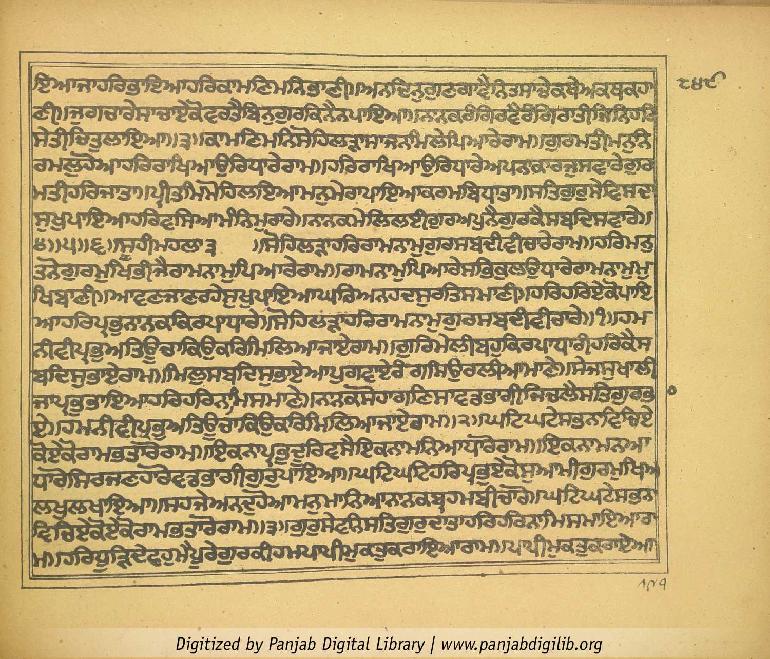 ਇਆਜਾਹਰਿਭਾਇਆਹਰਿਕਾਮਣਿਮਨਿਭਾਣੀ॥ਅਨਦਿਨੁਗੁਣਗਾਵੈਨਿਤਸਾਚੇਕਥੇਅਕਥਕਹਾ ੮੪੯
ਣੀ॥ਜੁਗਚਾਰੇਸਾਚਾਏਕੋਵਰਤੈਬਿਨੁਗੁਰਕਿਨੈਨਪਾਇਆ॥ਨਾਨਕਰੰਗਿਰਵੈਰੰਗਿਰਾਤੀਜਿਨਿਹਰਿ
ਸੇਤੀਚਿਤੁਲਾਇਆ॥੩॥ਕਾਮਣਿਮਨਿਸੋਹਿਲੜਾਸਾਜਨਮਿਲੇਪਿਆਰੇਰਾਮ॥ਗੁਰਮਤੀਮਨੁਨਿ
ਰਮਲੁਹੋਆਹਰਿਰਾਖਿਆਉਰਿਧਾਰੇਰਾਮ॥ਹਰਿਰਾਖਿਆਉਰਿਧਾਰੇਅਪਨਾਕਾਰਜੁਸਵਾਰੇਗੁਰ
ਮਤੀਹਰਿਜਾਤਾ॥ਪ੍ਰੀਤਮਿਮੋਹਿਲਇਆਮਨੁਮੇਰਾਪਾਇਆਕਰਮਬਿਧਾਤਾ॥ਸਤਿਗੁਰੁਸੇਵਿਸਦਾ
ਸੁਖੁਪਾਇਆਹਰਿਵਸਿਆਮੰਨਿਮੁਰਾਰੇ॥ਨਾਨਕਮੇਲਿਲਈਗੁਰਿਅਪੁਨੈਗੁਰਕੈਸਬਦਿਸਵਾਰੇ॥
੪॥੫॥੬॥ਸੂਹੀਮਹਲਾ੩ ॥ਸੋਹਿਲੜਾਹਰਿਰਾਮਨਾਮੁਗੁਰਸਬਦੀਵੀਚਾਰੇਰਾਮ॥ਹਰਿਮਨੁ
ਤਨੋਗੁਰਮੁਖਿਭੀਜੈਰਾਮਨਾਮੁਪਿਆਰੇਰਾਮ॥ਰਾਮਨਾਮੁਪਿਆਰੇਸਭਿਕੁਲਉਧਾਰੇਰਾਮਨਾਮੁਮੁ
ਖਿਬਾਣੀ॥ਆਵਣਜਾਣਰਹੇਸੁਖੁਪਾਇਆਘਰਿਅਨਹਦਸੁਰਤਿਸਮਾਣੀ॥ਹਰਿਹਰਿਏਕੋਪਾਇ
ਆਹਰਿਪ੍ਰਭੁਨਾਨਕਕਿਰਪਾਧਾਰੇ॥ਸੋਹਿਲੜਾਹਰਿਰਾਮਨਾਮੁਗੁਰਸਬਦੀਵੀਚਾਰੇ॥੧॥ਹਮ
ਨੀਵੀਪ੍ਰਭੁਅਤਿਊਚਾਕਿਉਕਰਿਮਿਲਿਆਜਾਏਰਾਮ॥ਗੁਰਿਮੇਲੀਬਹੁਕਿਰਪਾਧਾਰੀਹਰਿਕੈਸ
ਬਦਿਸੁਭਾਏਰਾਮ॥ਮਿਲੁਸਬਦਿਸੁਭਾਏਆਪੁਗਵਾਏਰੰਗਸਿਉਰਲੀਆਮਾਣੇ॥ਸੇਜਸੁਖਾਲੀ
ਜਾਪ੍ਰਭੁਭਾਇਆਹਰਿਹਰਿਨਾਮਿਸਮਾਣੇ॥ਨਾਨਕਸੋਹਾਗਣਿਸਾਵਡਭਾਗੀਜਿਚਲੈਸਤਿਗੁਰਭਾ
ਏ॥ਹਮਨੀਵੀਪ੍ਰਭੁਅਤਿਊਚਾਕਿਉਕਰਿਮਿਲਿਆਜਾਏਰਾਮ॥੨॥ਘਟਿਘਟੇਸਭਨਾਵਿਚਿਏ
ਕੋਏਕੋਰਾਮਭਤਾਰੋਰਾਮ॥ਇਕਨਾਪ੍ਰਭੁਦੂਰਿਵਸੈਇਕਨਾਮਨਿਆਧਾਰੋਰਾਮ॥ਇਕਨਾਮਨਆ
ਧਾਰੋਸਿਰਜਣਹਾਰੋਵਡਭਾਗੀਗੁਰੁਪਾਇਆ॥ਘਟਿਘਟਿਹਰਿਪ੍ਰਭੁਏਕੋਸੁਆਮੀਗੁਰਮੁਖਿਅ
ਲਖੁਲਖਾਇਆ॥ਸਹਜੇਅਨਦੁਹੋਆਮਨੁਮਾਨਿਆਨਾਨਕਬ੍ਰਹਮਬੀਚਾਰੋ॥ਘਟਿਘਟੇਸਭਨਾ
ਵਿਚਿਏਕੋਏਕੋਰਾਮਭਤਾਰੋਰਾਮ॥੩॥ਗੁਰੁਸੇਵਨਿਸਤਿਗੁਰੁਦਾਤਾਹਰਿਹਰਿਨਾਮਿਸਮਾਇਆਰਾ
ਮ॥ਹਰਿਧੂੜਿਦੇਵਹੁਮੈਪੂਰੇਗੁਰਕੀਹਮਪਾਪੀਮੁਕਤੁਕਰਾਇਆਰਾਮ॥ਪਾਪੀਮੁਕਤੁਕਰਾਏਆ
Digitized by Panjab Digital Library | www.panjabdigilib.org